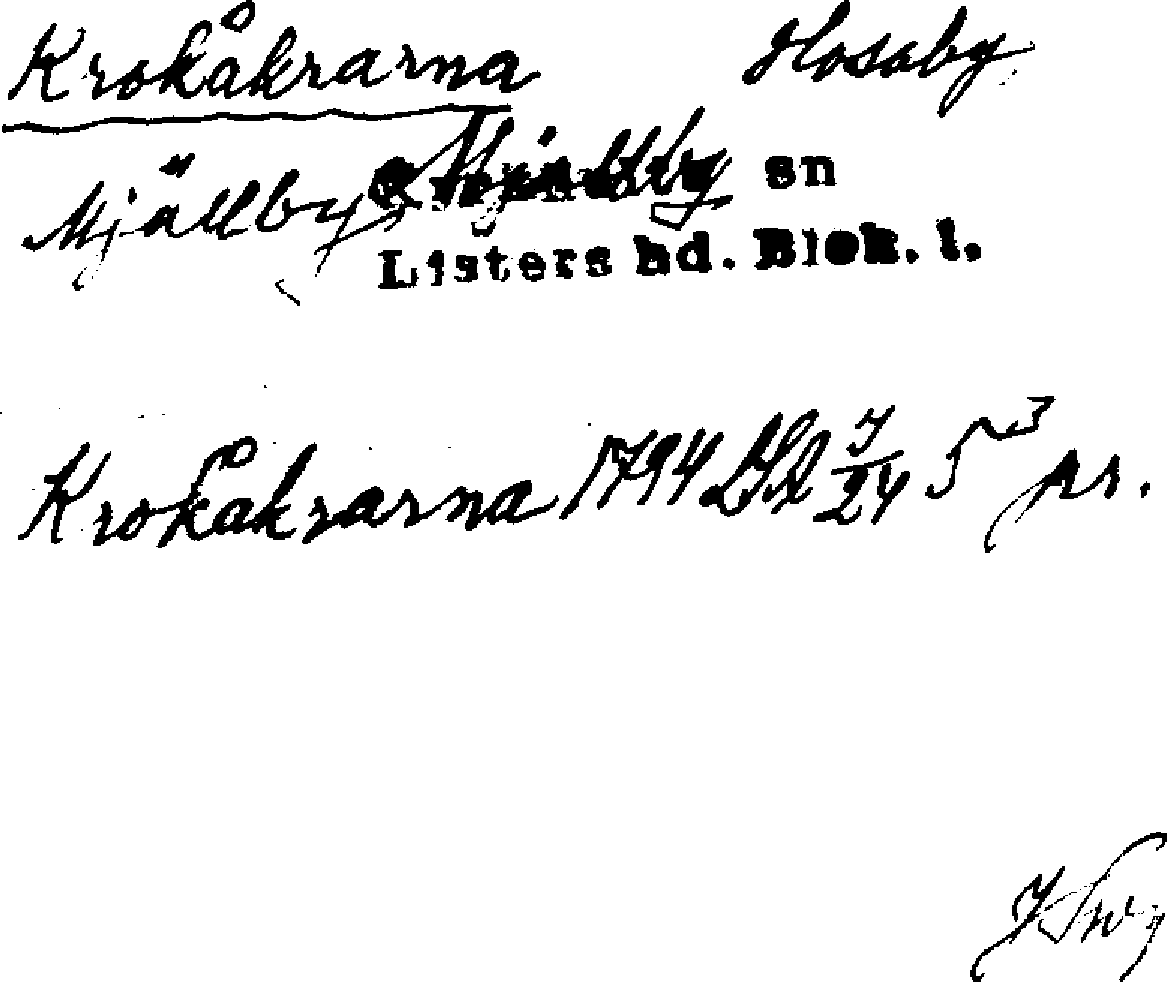 Krokåkrarna Hosaby
Mjällby Mjällby sn
Listers hd. Blek. l.
Krokåkrarna 1794 7/24 5 3 pr.